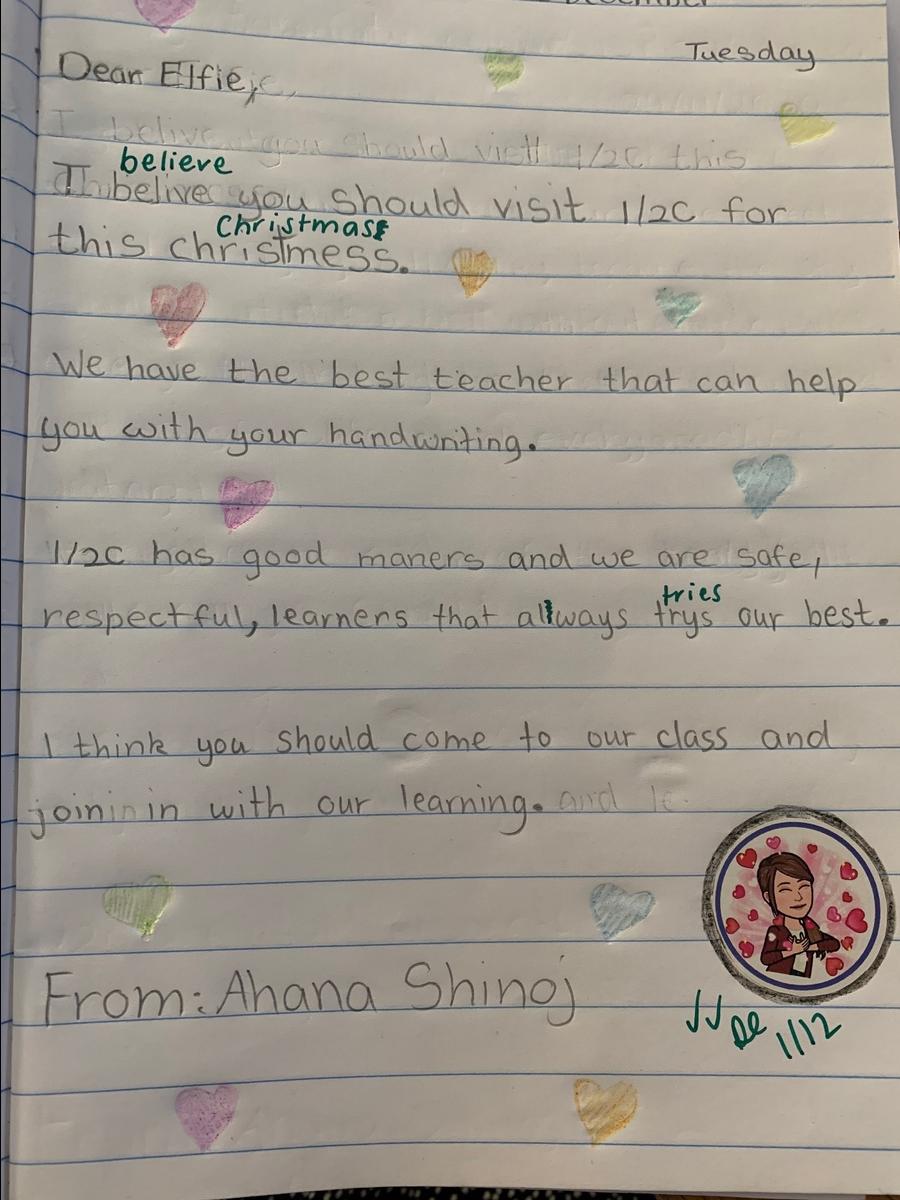 December
Tuesday
Dear Elfie,
I belive you should visit 1/2C this
believe
I belive you should visit 1/2C for
Christmas
this christmess.
We have the best teacher that can help
you with your handwriting.
1/2C has good maners and we are safe,
tries
respectful, learners that always trys our best.
I think you should come to our class and
join in with our learning. and le
From: Ahana Shinoj
1/12